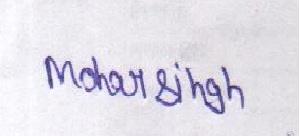 Mohar singh